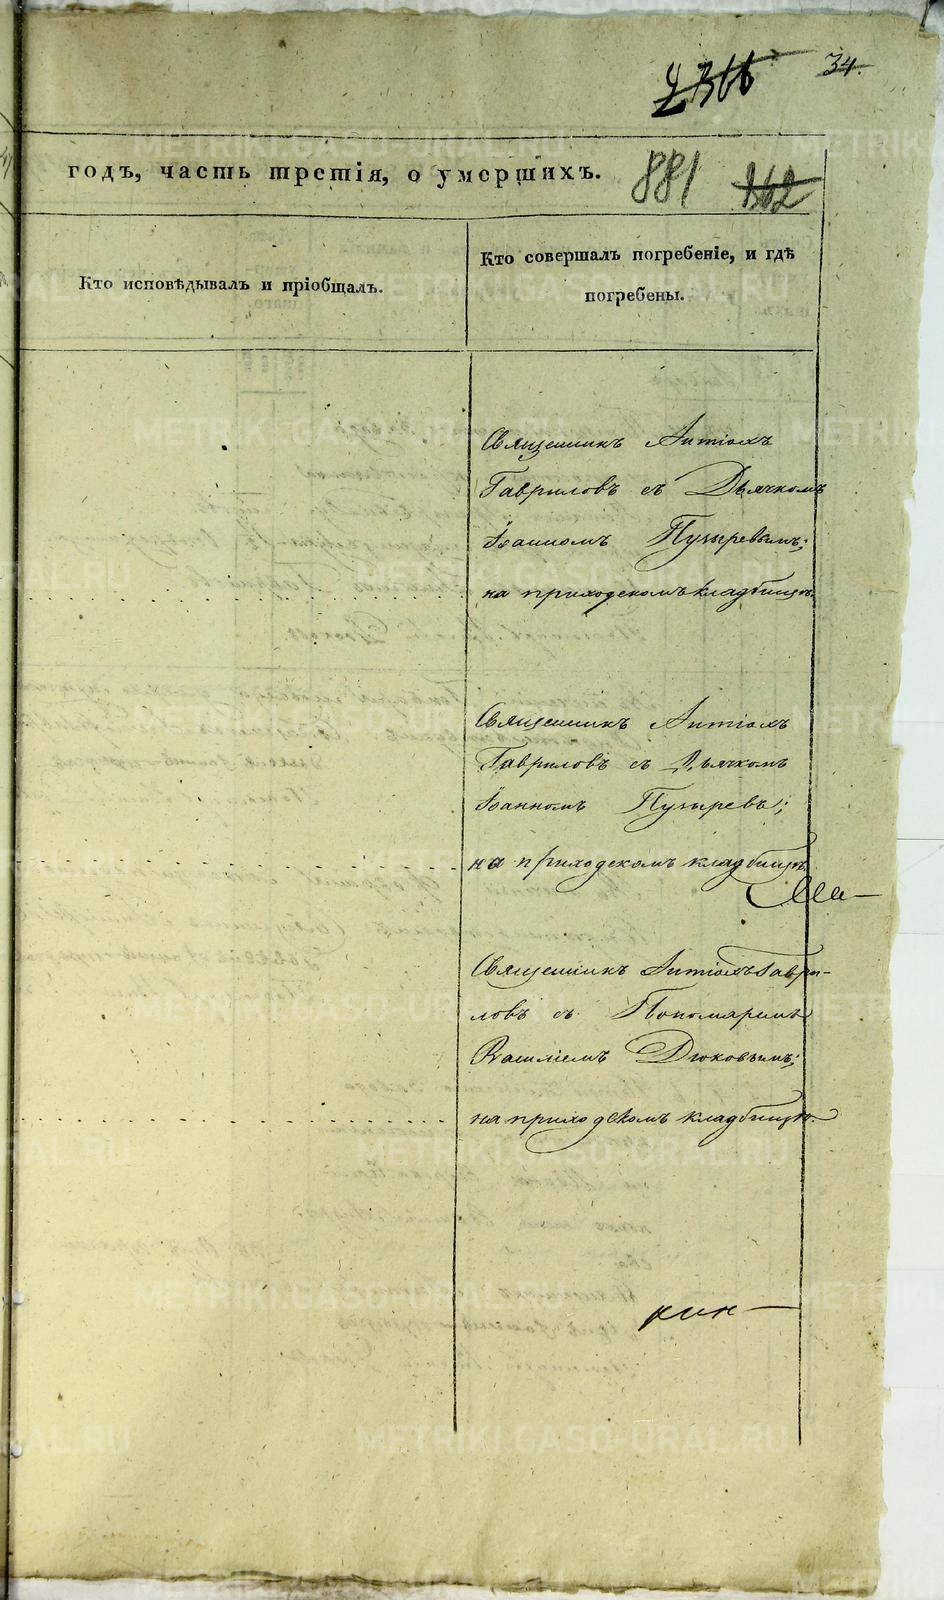 34.
годъ, часть третія, о умершихъ.
881
362
Кто исповѣдывалъ и пріобщалъ.
Кто совершалъ погребеніе, и гдѣ
погребены.
Священникъ Антіохъ
Гавриловъ съ Дьячкомъ
Іоанномъ Пузыревымъ;
на приходскомъ кладбищѣ.
Священникъ Антіохъ
Гавриловъ съ Дьячкомъ
Іоанномъ Пузыревъ;
на приходскомъ кладбищѣ
Священникъ Антіохъ Гаври-
ловъ съ Пономаремъ
Василіемъ Дюковымъ;
на приходскомъ кладбищѣ.
METRIKI.GASO-URAL.RU